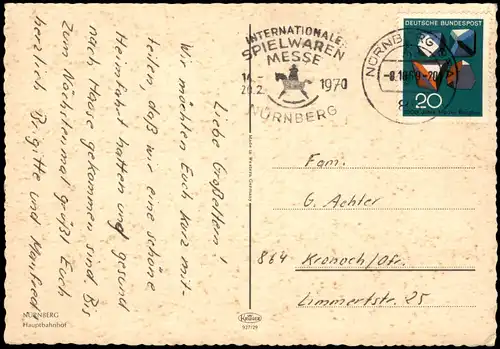 Liebe Großeltern!
Wir möchten Euch kurz mit-
teilen, daß wir eine schöne
Heimfahrt hatten und gesund
nach Hause gekommen sind. Bis
zum Nächstenmal grüßt Euch
herzlich Brigitte und Manfred
NÜRNBERG
Hauptbahnhof
INTERNATIONALE
SPIELWAREN
MESSE
14.-
20.2. 1970
NÜRNBERG
NÜRNBERG
DEUTSCHE BUNDESPOST
20
Fam.
G. Achter
864 Kronach/Ofr.
Limmertstr. 25
Krüger
927/29